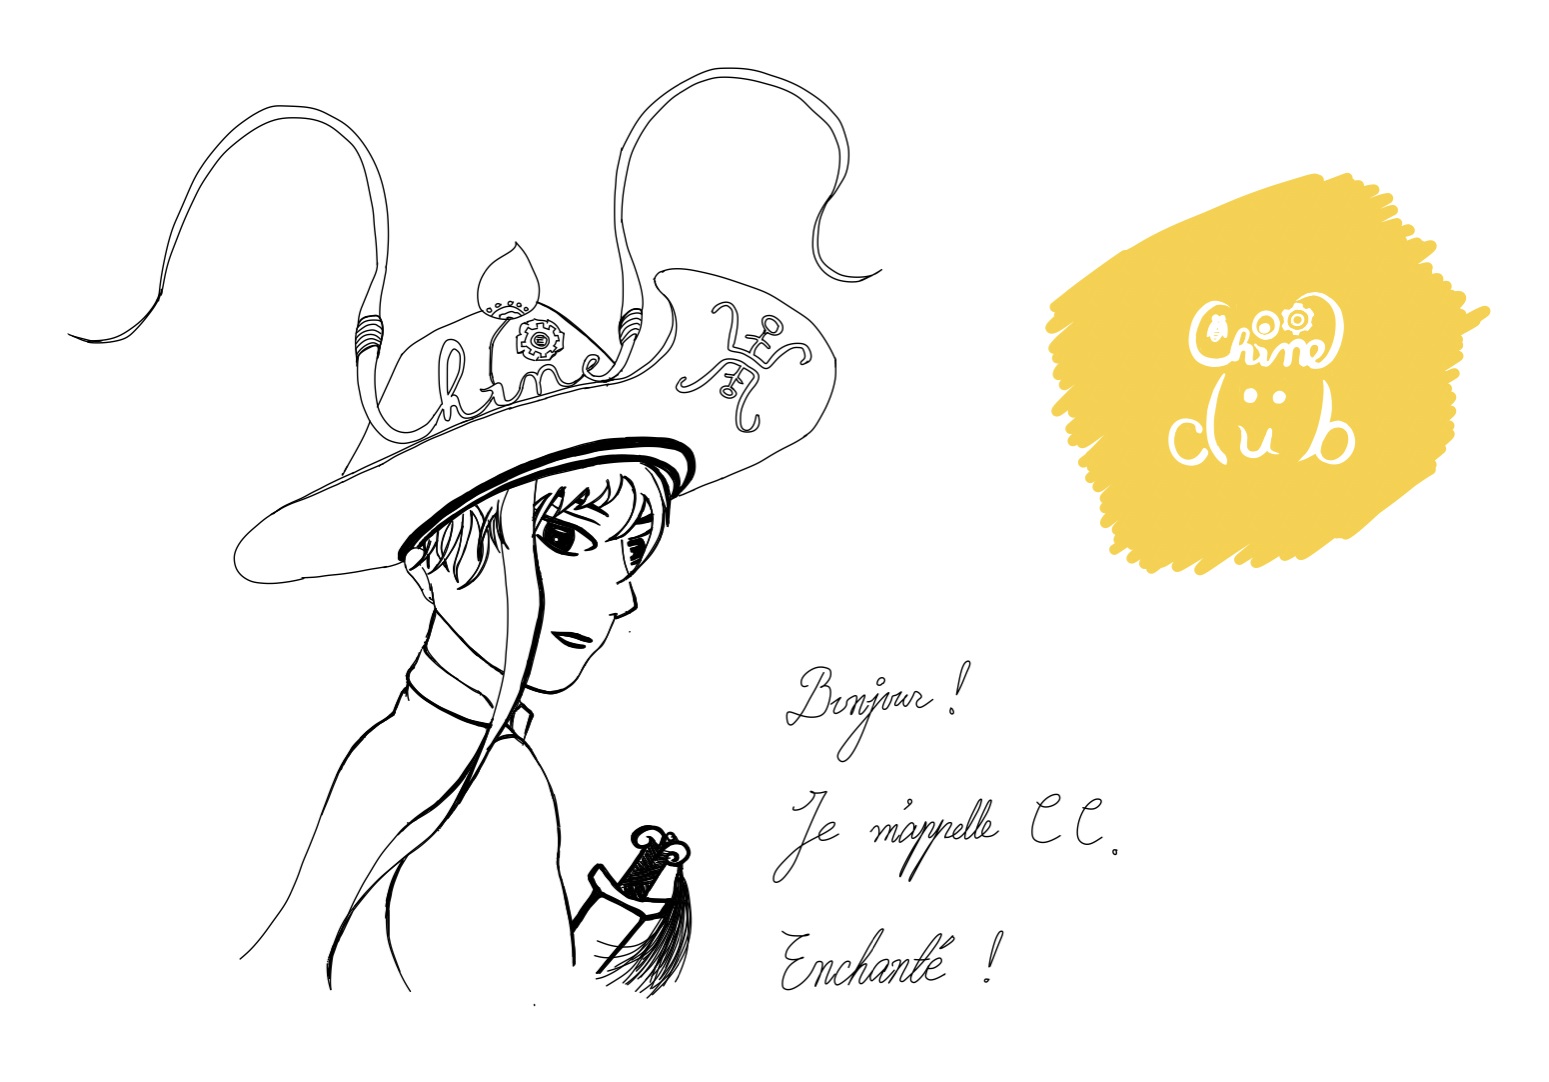 Chine
Chine
club
Bonjour !
Je m'appelle CC.
Enchanté !